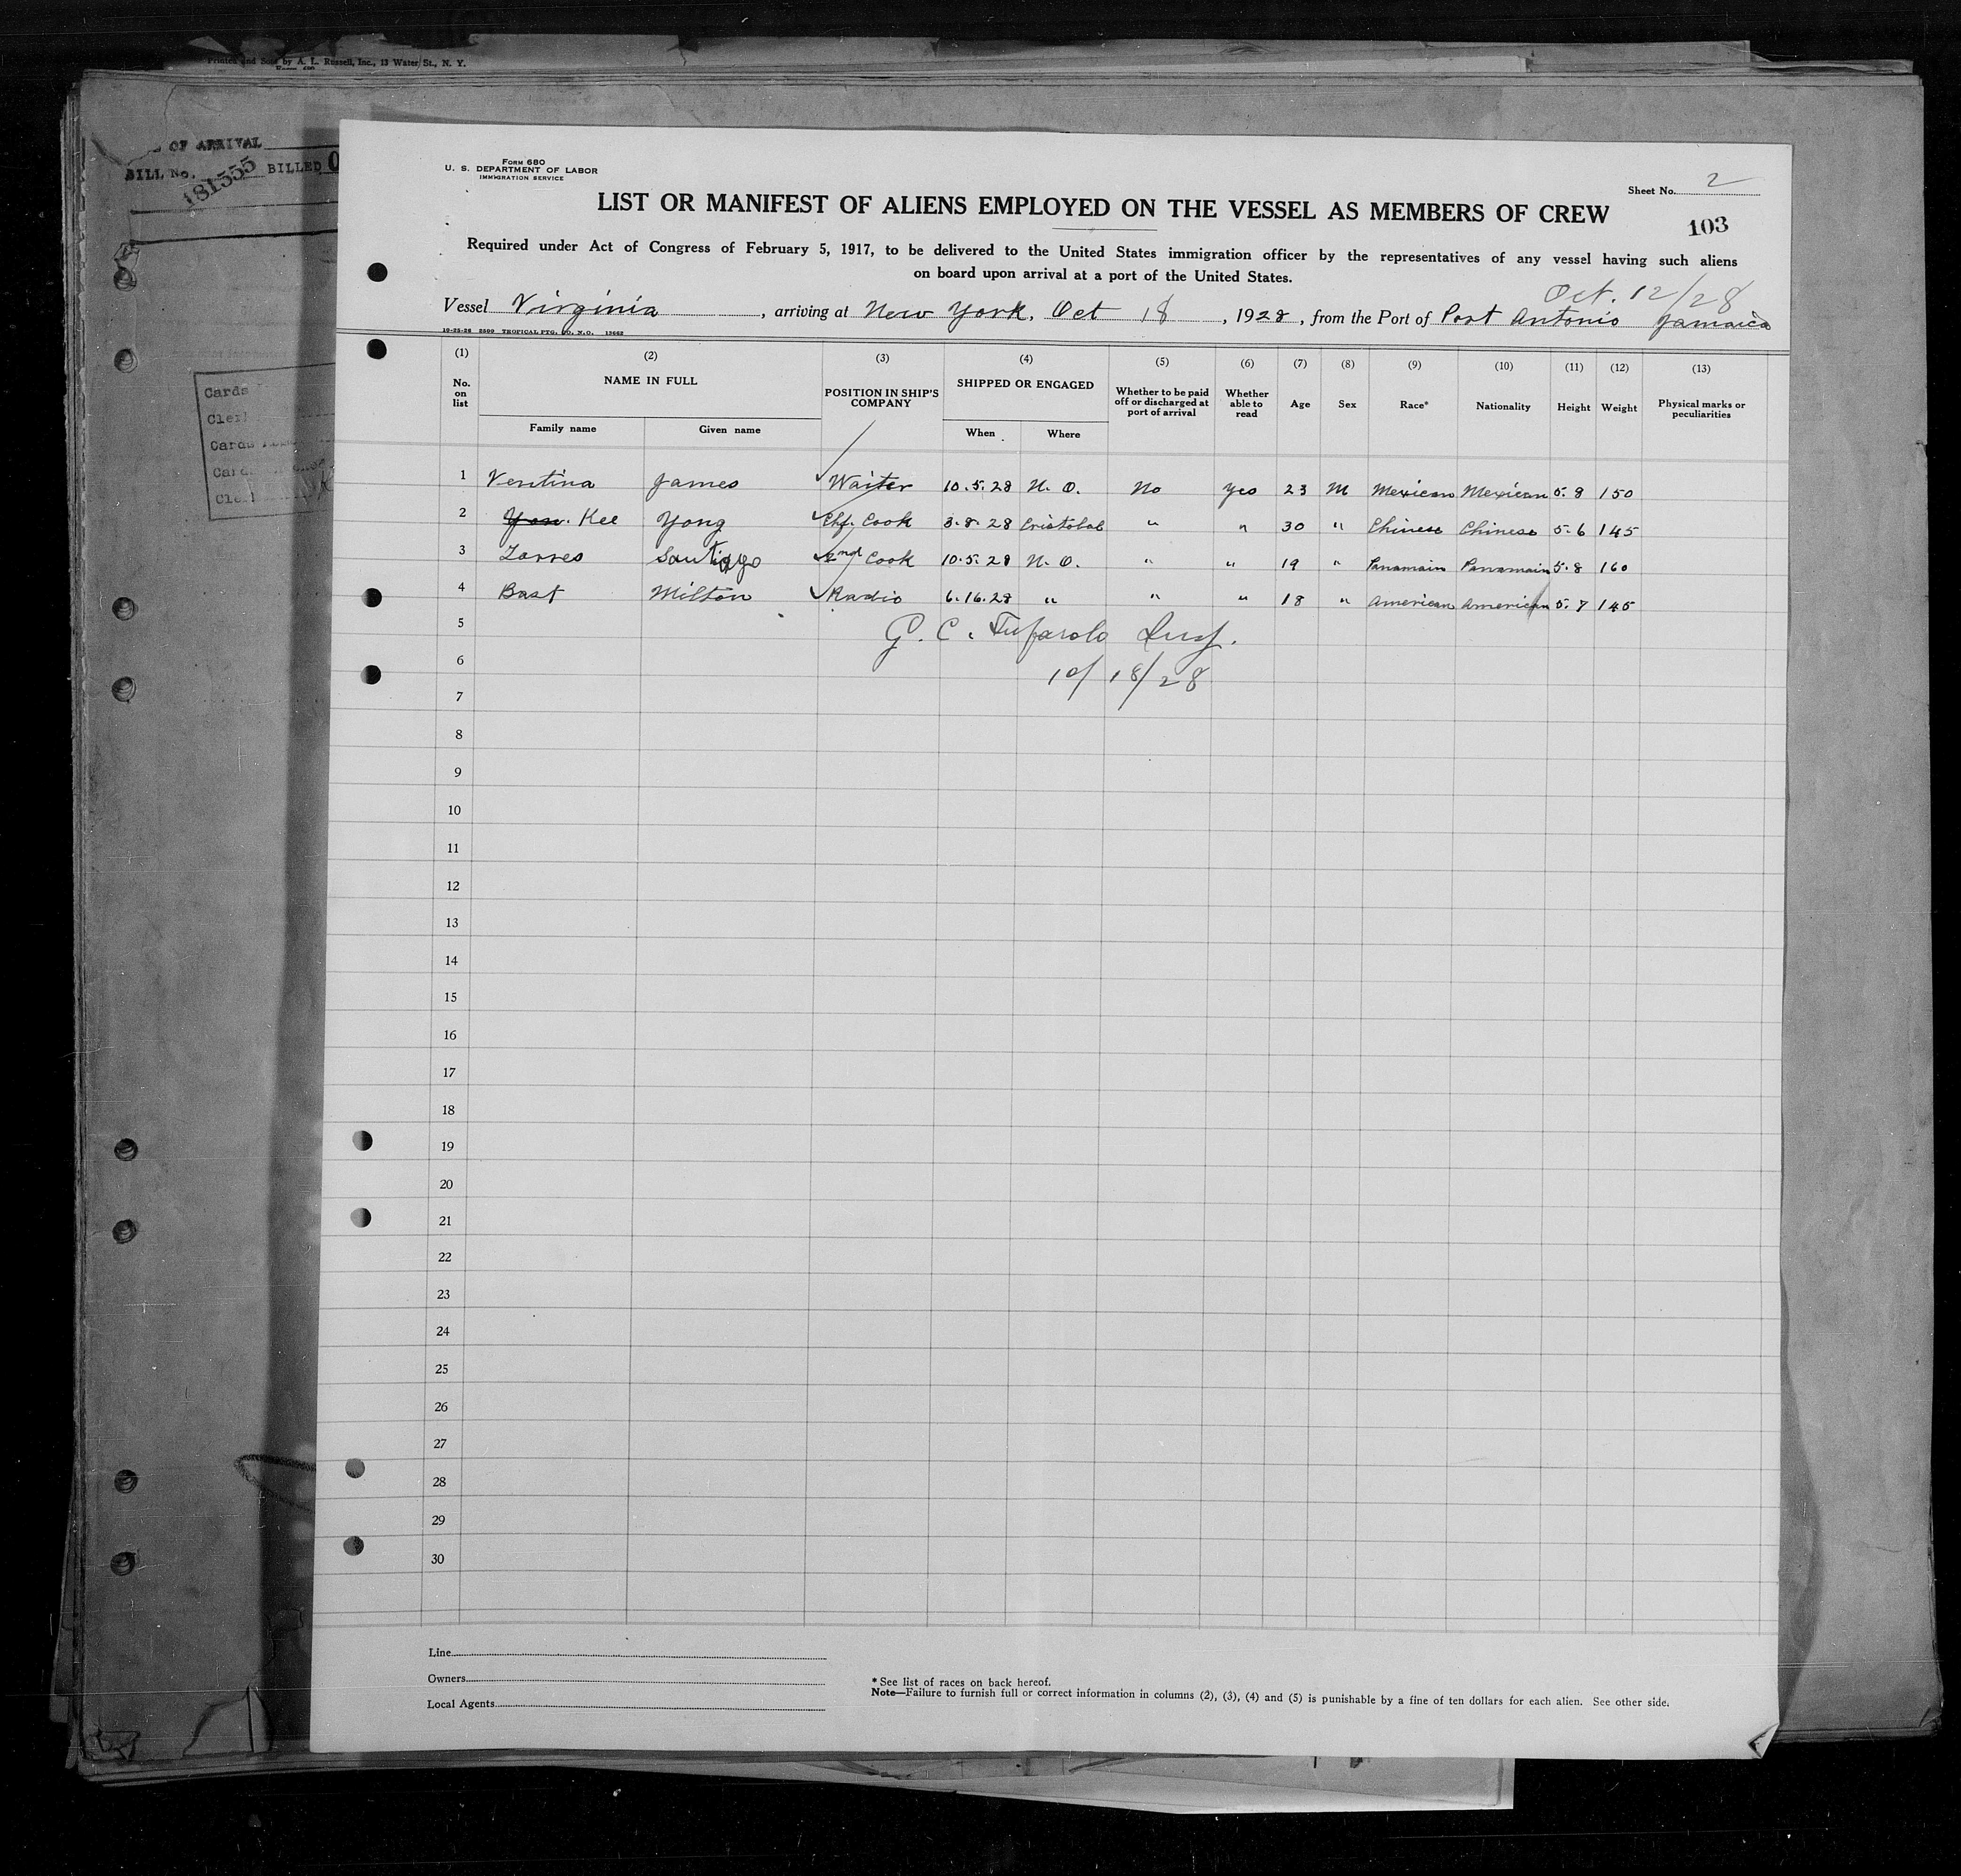 Printed and Sold by A. L. Russell, Inc., 13 Water St., N. Y.
OF ARRIVAL
BILL No. 181555 BILLED
Cards
Cards
Form 680
U. S. DEPARTMENT OF LABOR
IMMIGRATION SERVICE
Sheet No. 2
LIST OR MANIFEST OF ALIENS EMPLOYED ON THE VESSEL AS MEMBERS OF CREW
103
Required under Act of Congress of February 5, 1917, to be delivered to the United States immigration officer by the representatives of any vessel having such aliens
on board upon arrival at a port of the United States.
Oct. 12/28
Vessel Virginia, arriving at New York, Oct 18, 1928, from the Port of Port Antonio Jamaica
10-25-26 2500 TROPICAL PTG. CO. N.O. 13662
(1) (2) (3) (4) (5) (6) (7) (8) (9) (10) (11) (12) (13)
No. on list NAME IN FULL POSITION IN SHIP'S COMPANY SHIPPED OR ENGAGED Whether to be paid off or discharged at port of arrival Whether able to read Age Sex Race* Nationality Height Weight Physical marks or peculiarities
Family name Given name When Where
1 Ventina James Waiter 10.5.28 N. O. No Yes 23 M Mexican Mexican 5.8 150
2 Yon. Kee Yong Chf. Cook 3.8.28 Cristobal " " 30 " Chinese Chinese 5.6 145
3 Torres Santiago 2nd Cook 10.5.28 N. O. " " 19 " Panamain Panamain 5.8 160
4 Bast Milton Radio 6.16.28 " " " 18 " American American 5.7 145
5 G. C. Tufarolo Insp.
6 10/18/28
7
8
9
10
11
12
13
14
15
16
17
18
19
20
21
22
23
24
25
26
27
28
29
30
Line
Owners
Local Agents
* See list of races on back hereof.
Note—Failure to furnish full or correct information in columns (2), (3), (4) and (5) is punishable by a fine of ten dollars for each alien. See other side.